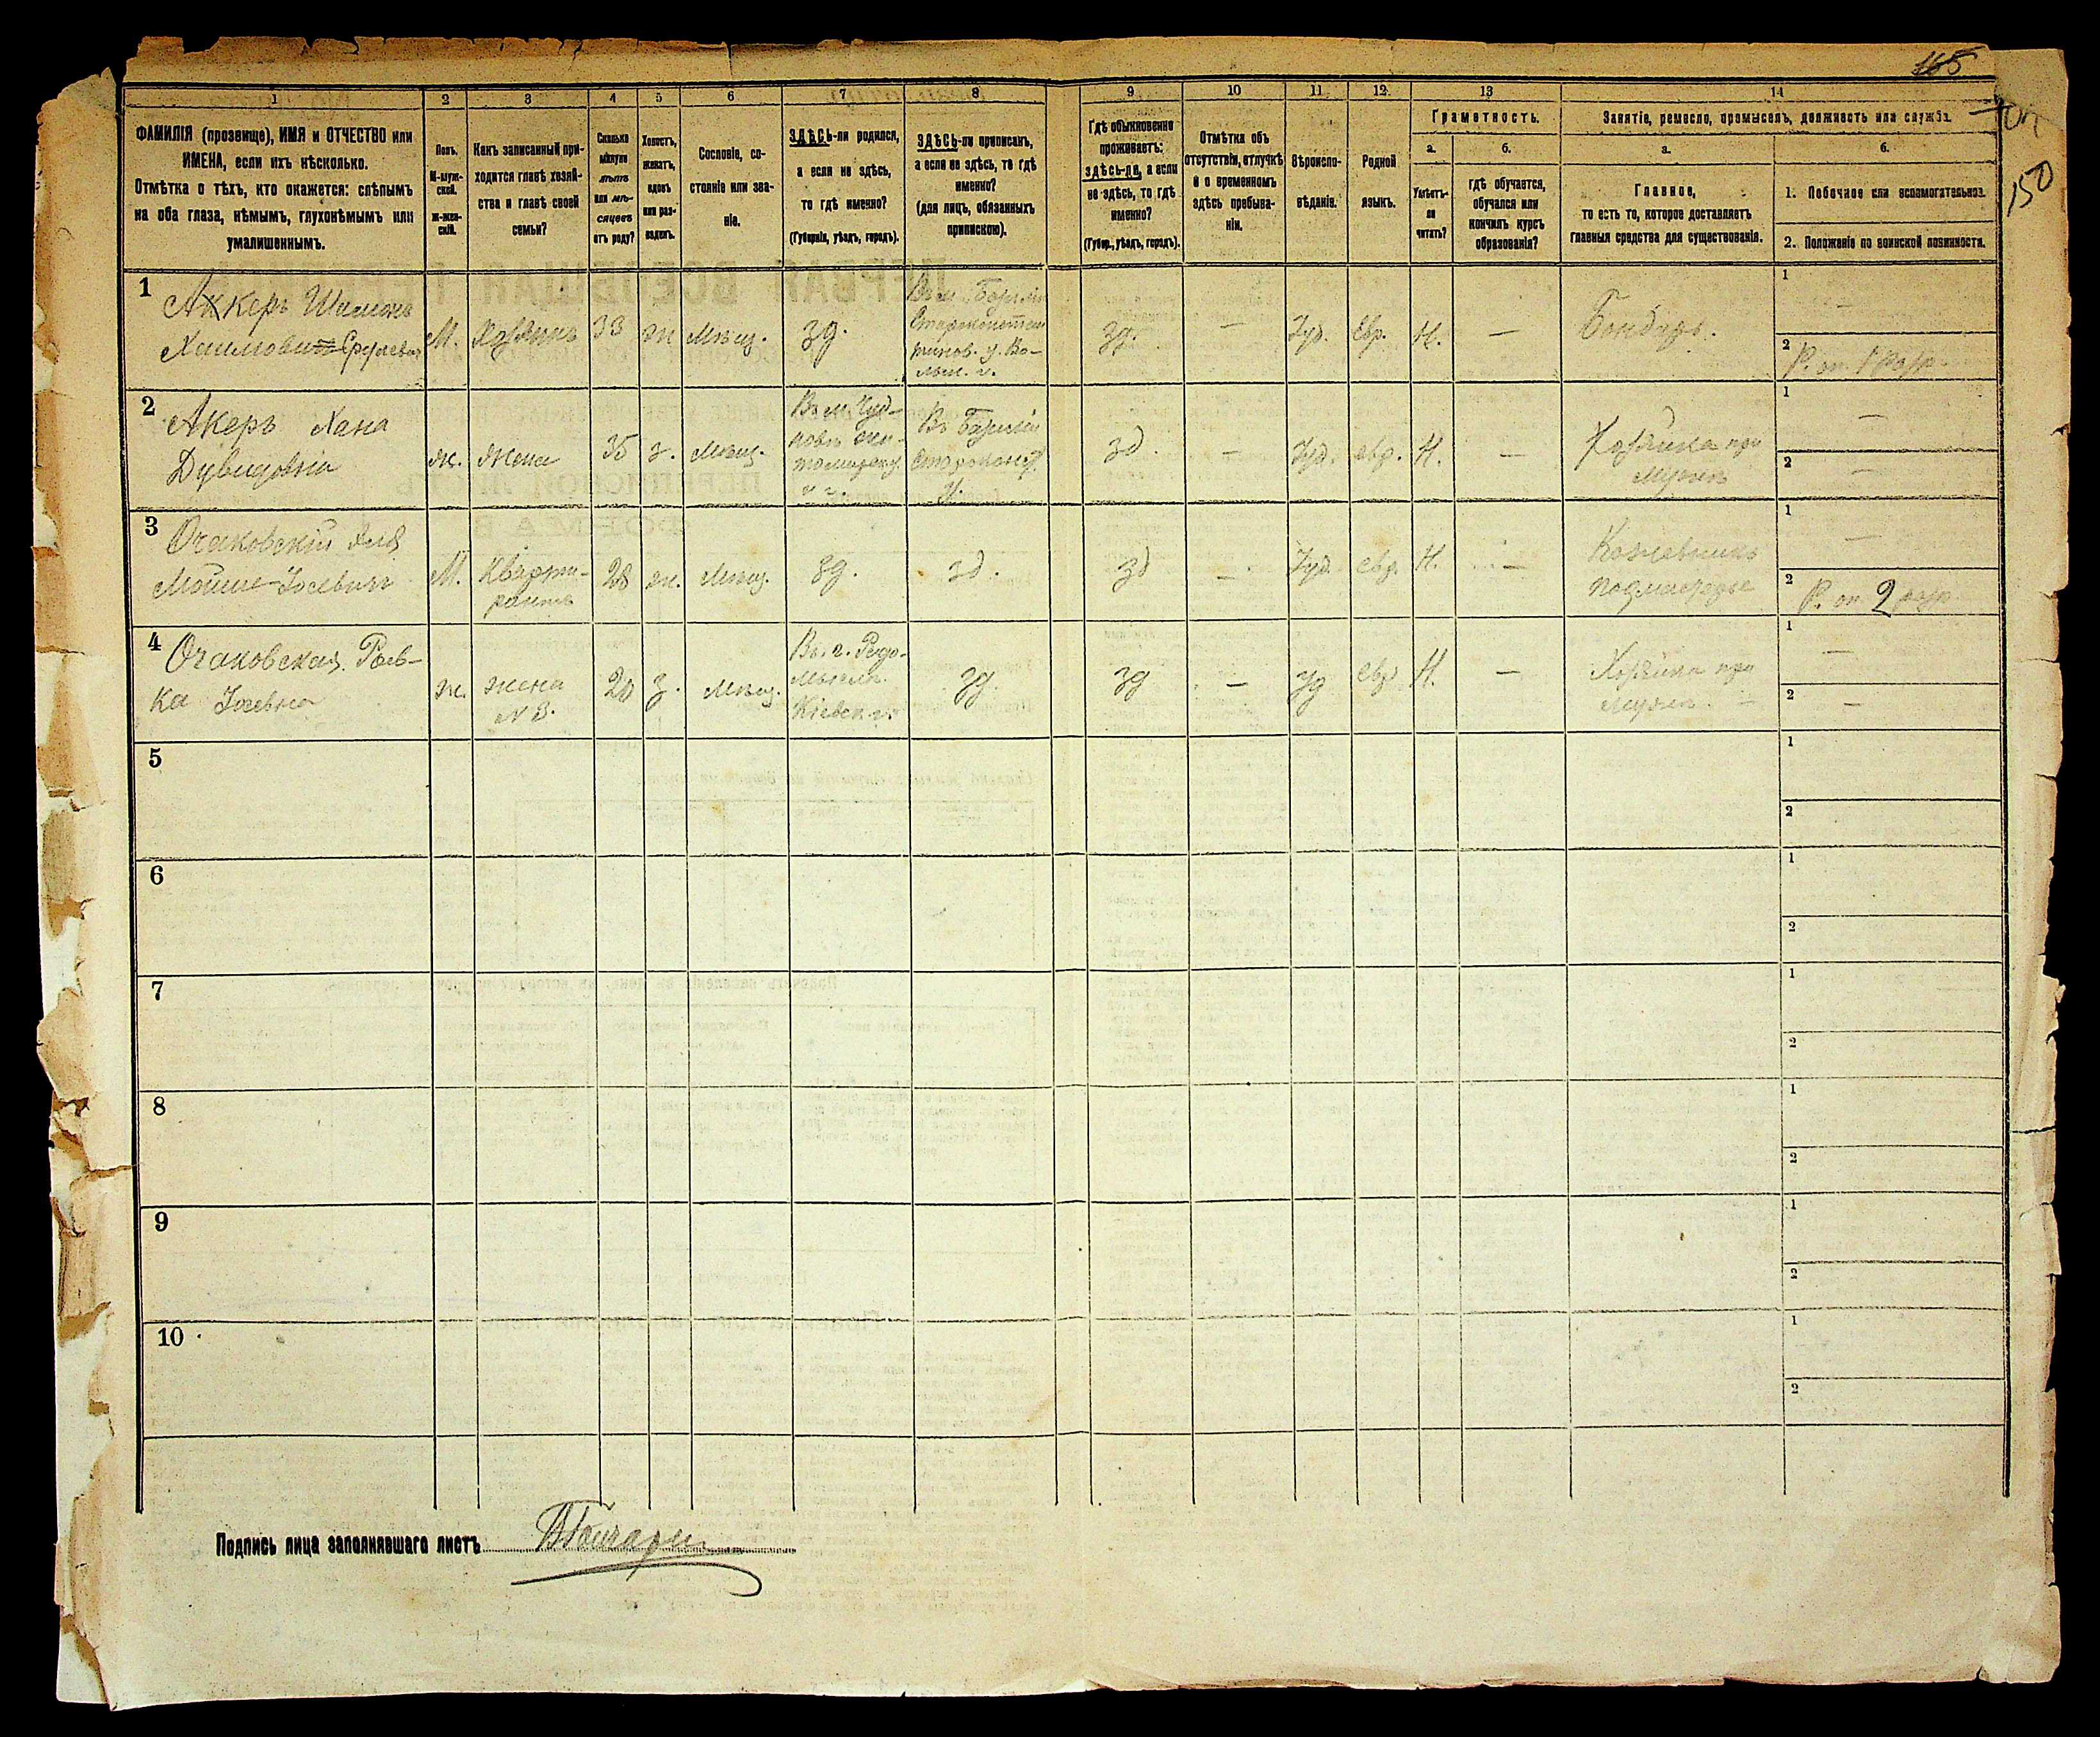 165
150
1
2
3
4
5
6
7
8
9
10
11
12
13
14
ФАМИЛІЯ (прозвище), ИМЯ и ОТЧЕСТВО или
ИМЕНА, если ихъ нѣсколько.
Отмѣтка о тѣхъ, кто окажется: слѣпымъ
на оба глаза, нѣмымъ, глухонѣмымъ или
умалишеннымъ.
Полъ.
М-муж-
ской.
ж-жен-
скій.
Какъ записанный при-
ходится главѣ хозяй-
ства и главѣ своей
семьи?
Сколько
минуло
лѣтъ
или мѣ-
сяцевъ
отъ роду?
Холостъ,
женатъ,
вдовъ
или раз-
веденъ.
Сословіе, со-
стояніе или зва-
ніе.
ЗДѢСЬ-ли родился,
а если не здѣсь,
то гдѣ именно?
(Губернія, уѣздъ, городъ).
ЗДѢСЬ-ли приписанъ,
а если не здѣсь, то гдѣ
именно?
(для лицъ, обязанныхъ
припискою).
Гдѣ обыкновенно
проживаетъ:
здѣсь-ли, а если
не здѣсь, то гдѣ
именно?
(Губер., уѣздъ, городъ).
Отмѣтка объ
отсутствіи, отлучкѣ
и о временномъ
здѣсь пребыва-
ніи.
Вѣроиспо-
вѣданіе.
Родной
языкъ.
Грамотность.
а.
Умѣетъ-
ли
читать?
б.
гдѣ обучается,
обучался или
кончилъ курсъ
образованія?
Занятіе, ремесло, промыселъ, должность или служба.
а.
Главное,
то есть то, которое доставляетъ
главныя средства для существованія.
б.
1. Побочное или вспомогательное.
2. Положеніе по воинской повинности.
1
Аккеръ Шимонъ
Хаимовичъ Сруλевичъ
М.
Хозяинъ
33
ж
Мѣщ.
зд.
Въ м. Базалии
Староконстан
тинов. у. Во-
лын. г.
зд.
—
Іуд.
евр.
Н.
—
Бондарь.
1 —
2 Р. оп. 1 разр.
2
Акеръ Хана
Дувидовна
ж.
Жена
35
з.
Мѣщ.
Въ м. Чуд-
новъ жи-
томирск. у.
Въ Базаліи
Староконст.
у.
зд.
—
Іуд.
евр.
Н.
—
Хозяйка при
мужѣ
1 —
2 —
3
Очаковскій
Мойше-Іосевичъ
М.
Кварти-
рантъ
28
ж.
Мѣщ.
зд.
зд.
зд
—
Іуд.
евр.
Н.
—
Кожевникъ
подмастерье
1 —
2 Р. оп. 2 разр.
4
Очаковская Рив-
ка Іосевна
ж.
жена
N 3.
20
з.
Мѣщ.
Въ г. Радо-
мыслъ.
Кіевск. г.
зд.
зд
—
Іуд
евр
Н.
—
Хозяйка при
мужѣ.
1 —
2 —
5
1
2
6
1
2
7
1
2
8
1
2
9
1
2
10
1
2
Подпись лица заполнявшаго листъ